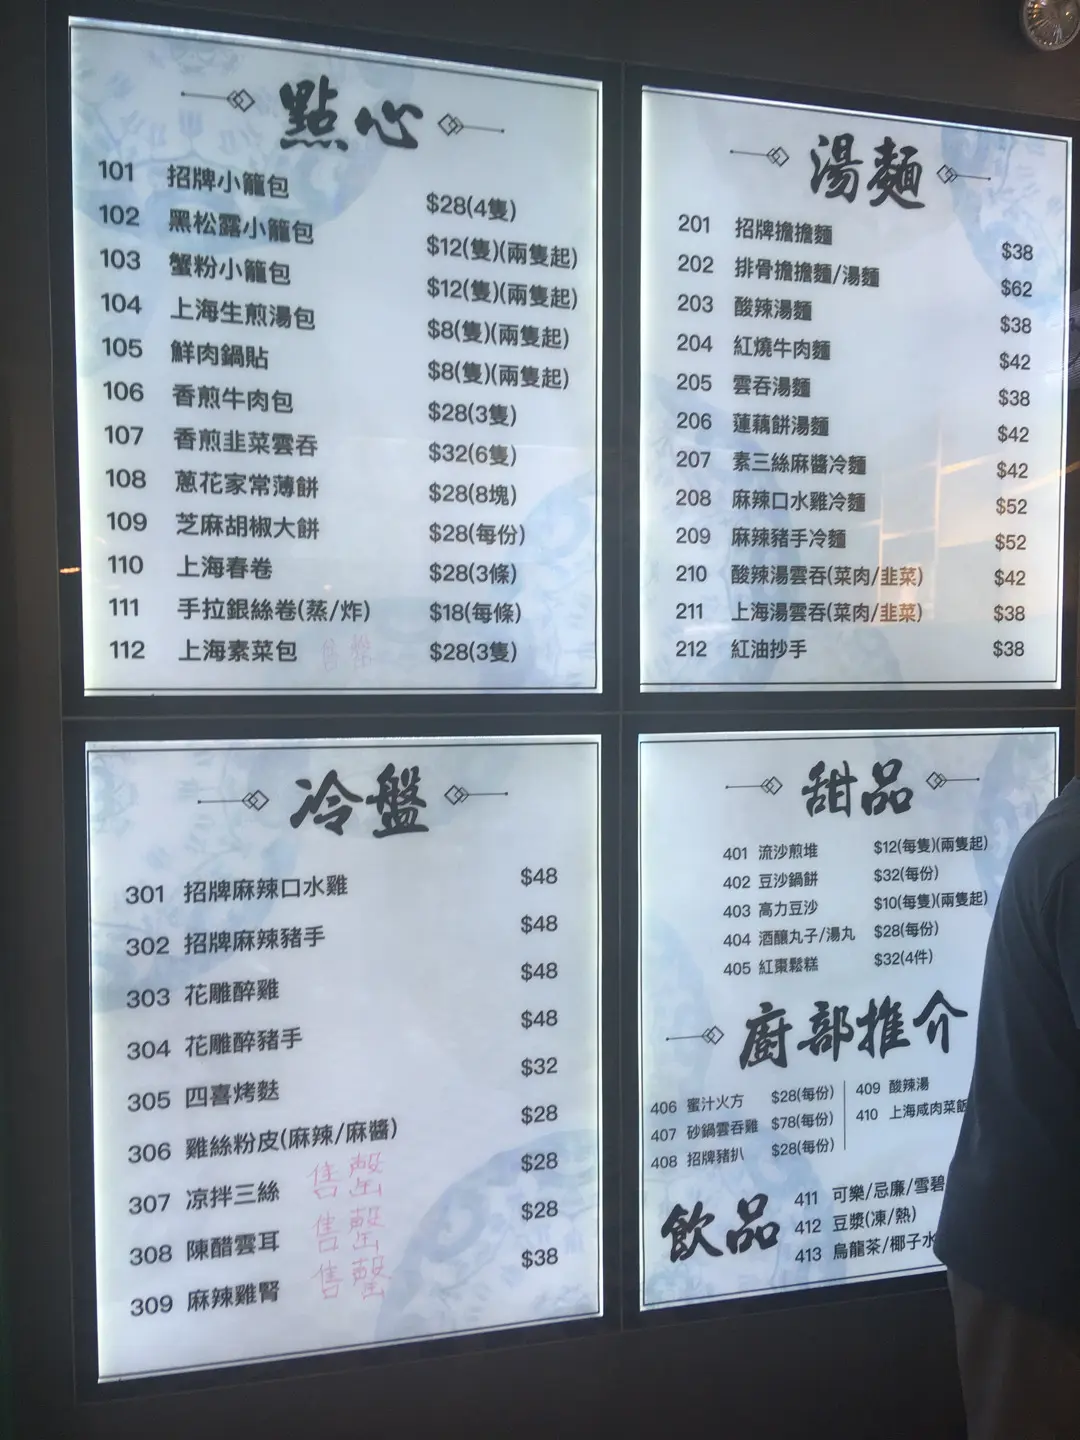 點心
101 招牌小籠包 $28(4隻)
102 黑松露小籠包 $12(隻)(兩隻起)
103 蟹粉小籠包 $12(隻)(兩隻起)
104 上海生煎湯包 $8(隻)(兩隻起)
105 鮮肉鍋貼 $8(隻)(兩隻起)
106 香煎牛肉包 $28(3隻)
107 香煎韭菜雲吞 $32(6隻)
108 蔥花家常薄餅 $28(8塊)
109 芝麻胡椒大餅 $28(每份)
110 上海春卷 $28(3條)
111 手拉銀絲卷(蒸/炸) $18(每條)
112 上海素菜包 售罄 $28(3隻)
湯麵
201 招牌擔擔麵 $38
202 排骨擔擔麵/湯麵 $62
203 酸辣湯麵 $38
204 紅燒牛肉麵 $42
205 雲吞湯麵 $38
206 蓮藕餅湯麵 $42
207 素三絲麻醬冷麵 $42
208 麻辣口水雞冷麵 $52
209 麻辣豬手冷麵 $52
210 酸辣湯雲吞(菜肉/韭菜) $42
211 上海湯雲吞(菜肉/韭菜) $38
212 紅油抄手 $38
冷盤
301 招牌麻辣口水雞 $48
302 招牌麻辣豬手 $48
303 花雕醉雞 $48
304 花雕醉豬手 $48
305 四喜烤麩 $32
306 雞絲粉皮(麻辣/麻醬) $28
307 凉拌三絲 售罄 $28
308 陳醋雲耳 售罄 $28
309 麻辣雞腎 售罄 $38
甜品
401 流沙煎堆 $12(每隻)(兩隻起)
402 豆沙鍋餅 $32(每份)
403 高力豆沙 $10(每隻)(兩隻起)
404 酒釀丸子/湯丸 $28(每份)
405 紅棗鬆糕 $32(4件)
廚部推介
406 蜜汁火方 $28(每份)
407 砂鍋雲吞雞 $78(每份)
408 招牌豬扒 $28(每份)
409 酸辣湯
410 上海咸肉菜飯
飲品
411 可樂/忌廉/雪碧
412 豆漿(凍/熱)
413 烏龍茶/椰子水